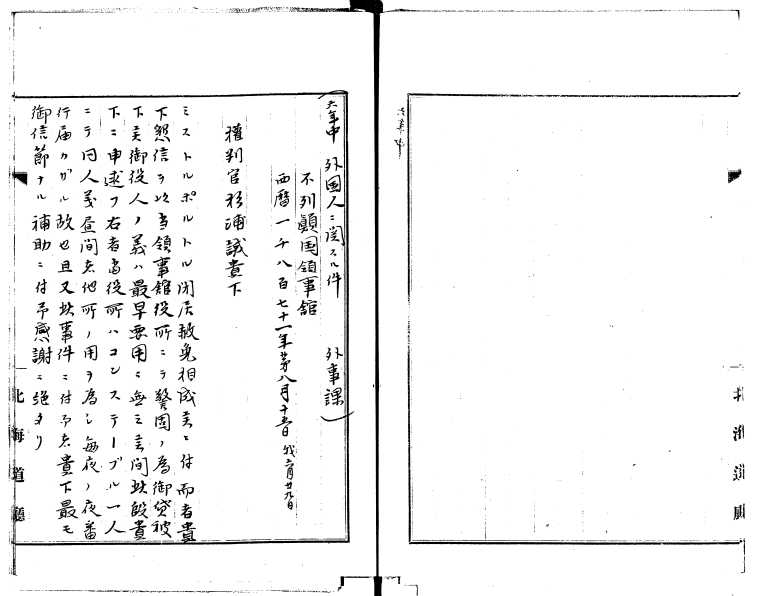 六年中 外国人ニ関スル件 外事課
不列顛国領事舘
西暦一千八百七十一年第八月十五日 我六月廿九日
権判官杉浦誠貴下
ミストルポルトル閉居赦免相成候ニ付而者貴
下懇信ヲ以当領事舘役所ニテ警固ノ為御貸被
下候御役人ノ義ハ最早要用ニ無之候間此段貴
下ニ申述フ右者当役所ハコンステーブル一人
ニテ同人義昼間者他所ノ用ヲ為シ毎夜ノ夜番
行届カザル故也且又此事件ニ付而者貴下最モ
御信節ナル補助ニ付予感謝ニ絶タリ
北海道廳
北海道廳